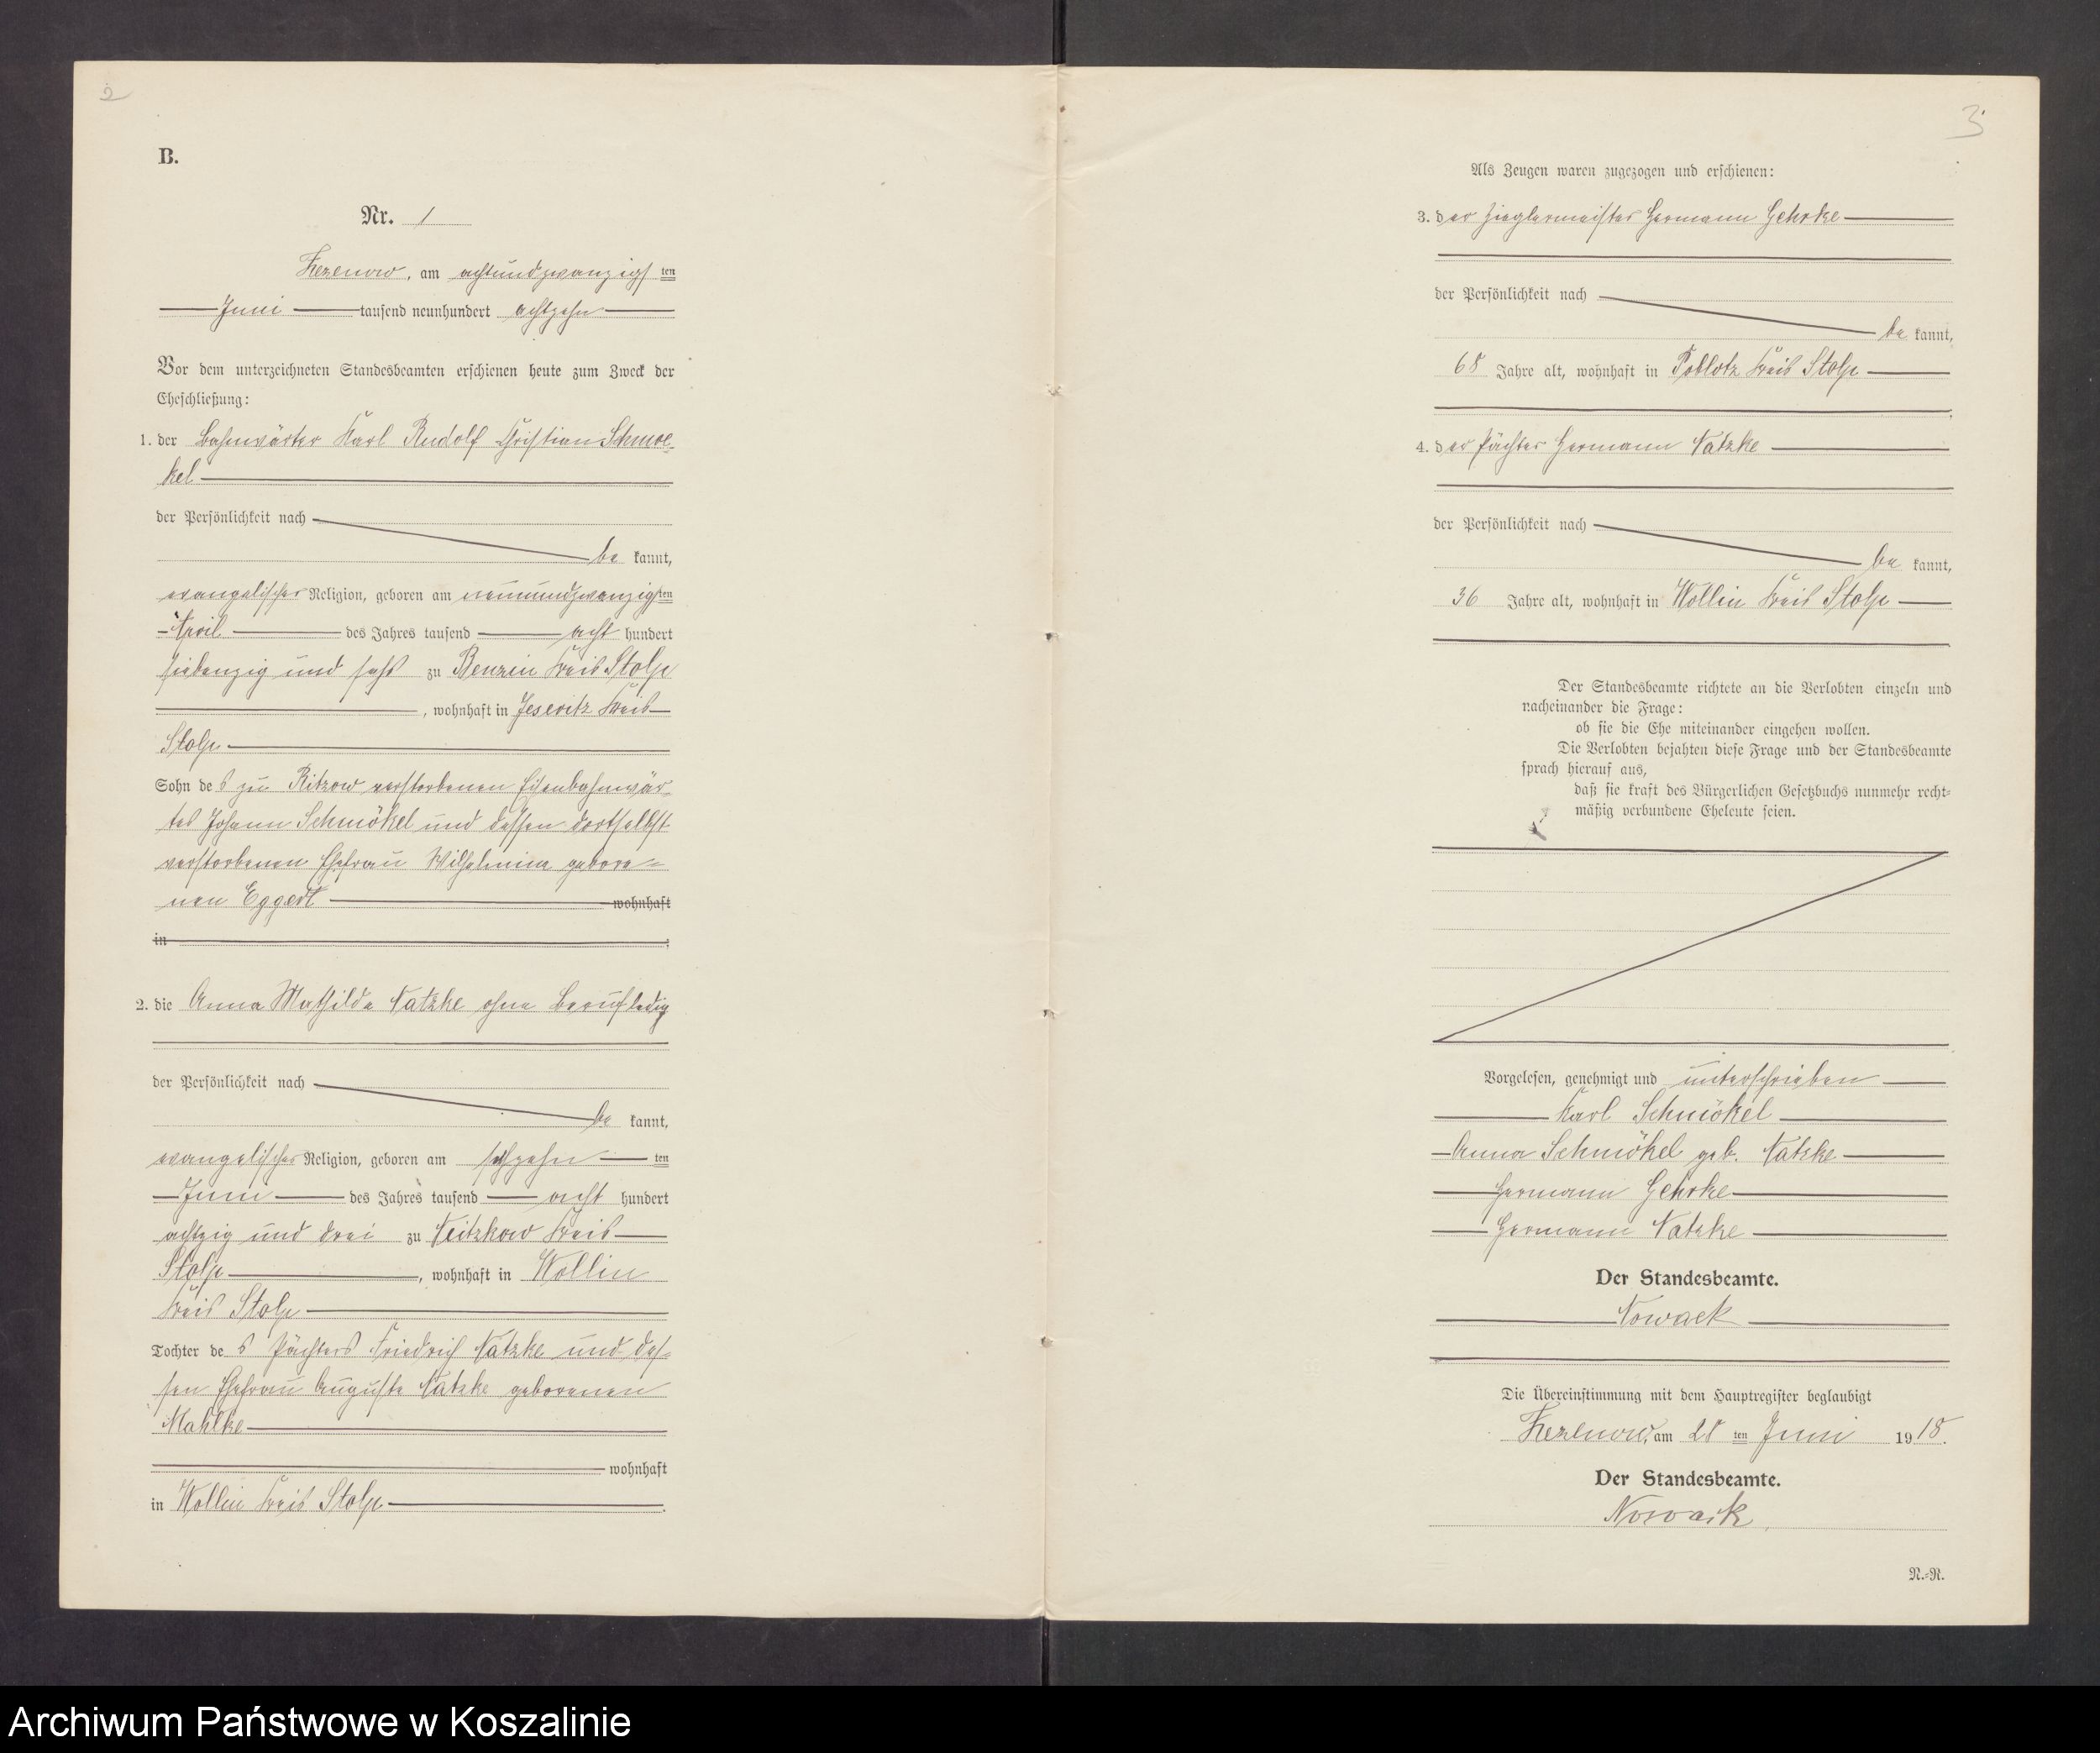 2
B.
Nr. 1
Zezenow, am achtundzwanzigsten
Juni tausend neunhundert achtzehn
Vor dem unterzeichneten Standesbeamten erschienen heute zum Zweck der
Eheschließung:
1. der Bahnwärter Karl Rudolf Christian Schmoe-
kel
der Persönlichkeit nach
be kannt,
evangelischer Religion, geboren am neunundzwanzigsten
April des Jahres tausend acht hundert
siebenzig und sechs zu Benzin Kreis Stolp
, wohnhaft in Jeseritz Kreis
Stolp
Sohn des zu Ritzow verstorbenen Eisenbahnwär-
ters Johann Schmökel und dessen dortselbst
verstorbenen Ehefrau Wilhelmine gebore-
nen Eggert wohnhaft
in ;
2. die Anna Mathilde Natzke ohne Beruf ledig
der Persönlichkeit nach
be kannt,
evangelischer Religion, geboren am sechzehn ten
Juni des Jahres tausend acht hundert
achtzig und drei zu Neitzkow Kreis
Stolp , wohnhaft in Wollin
Kreis Stolp
Tochter des Pächters Friedrich Natzke und des-
sen Ehefrau Auguste Natzke geborenen
Mahlke
wohnhaft
in Wollin Kreis Stolp .
3
Als Zeugen waren zugezogen und erschienen:
3. der Zieglermeister Hermann Gehrke
der Persönlichkeit nach
be kannt,
68 Jahre alt, wohnhaft in Poblotz Kreis Stolp
4. der Pächter Hermann Natzke
der Persönlichkeit nach
be kannt,
36 Jahre alt, wohnhaft in Wollin Kreis Stolp
Der Standesbeamte richtete an die Verlobten einzeln und
nacheinander die Frage:
ob sie die Ehe miteinander eingehen wollen.
Die Verlobten bejahten diese Frage und der Standesbeamte
sprach hierauf aus,
daß sie kraft des Bürgerlichen Gesetzbuchs nunmehr recht-
mäßig verbundene Eheleute seien.
Vorgelesen, genehmigt und unterschrieben
Karl Schmökel
Anna Schmökel geb. Natzke
Hermann Gehrke
Hermann Natzke
Der Standesbeamte.
Nowack
Die Übereinstimmung mit dem Hauptregister beglaubigt
Zezenow, am 28 ten Juni 1918.
Der Standesbeamte.
Nowack
N.-R.
Archiwum Państwowe w Koszalinie